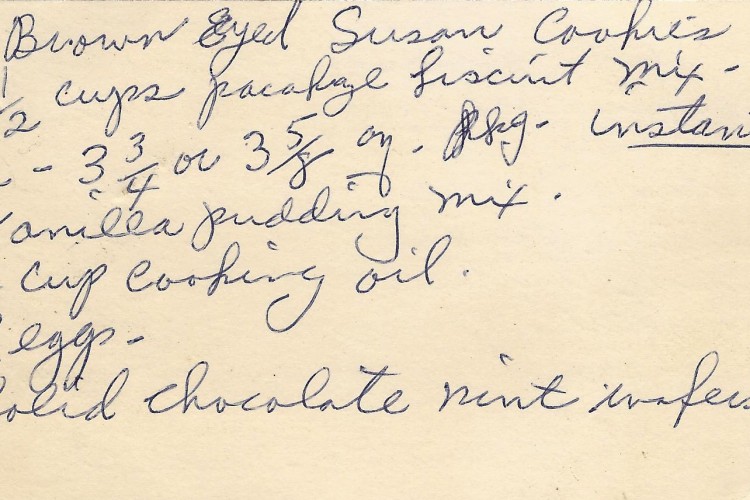 Brown Eyed Susan Cookies
1/2 cups pacakge biscuit mix -
- 3 3/4 or 3 5/8 oz. pkg. instan
Vanilla pudding mix.
cup cooking oil.
eggs-
Solid chocolate mint wafers